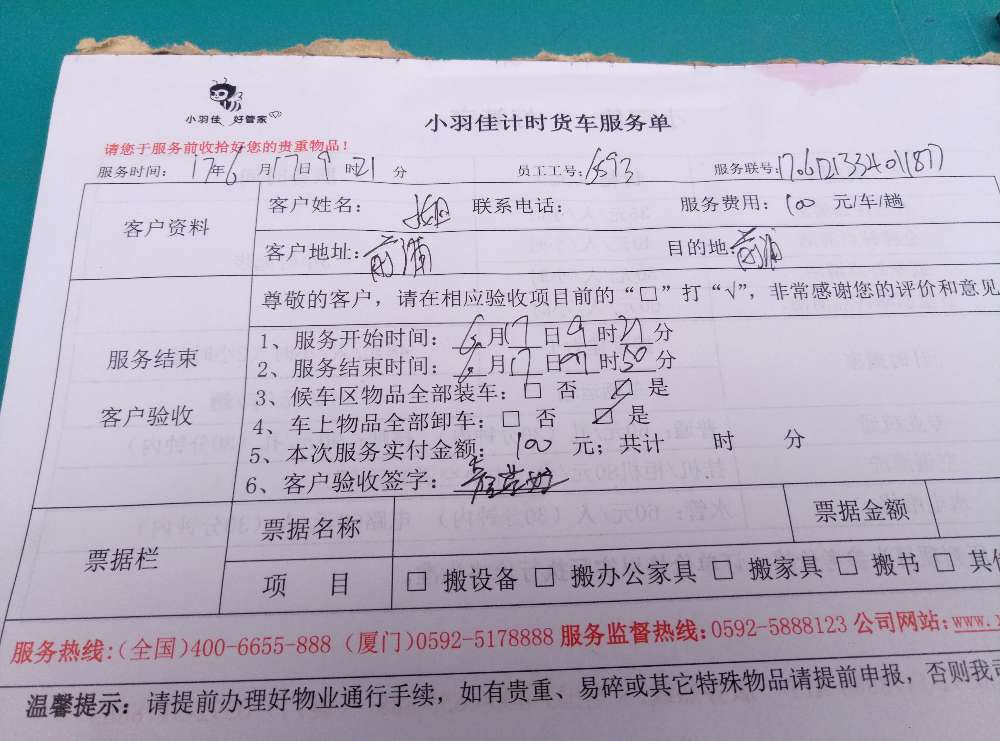 小羽佳 好管家
小羽佳计时货车服务单
请您于服务前收拾好您的贵重物品！
服务时间：17年6月17日9时21分 员工工号：6593 服务联号：
客户资料
客户姓名： 联系电话： 服务费用：100 元/车/趟
客户地址：前浦 目的地：前浦
服务结束
客户验收
尊敬的客户，请在相应验收项目前的“□”打“√”，非常感谢您的评价和意见
1、服务开始时间：6月17日9时21分
2、服务结束时间：6月17日 时50分
3、候车区物品全部装车：□ 否 ☑ 是
4、车上物品全部卸车：□ 否 ☑ 是
5、本次服务实付金额：100 元；共计 时 分
6、客户验收签字：
票据栏
票据名称 票据金额
项 目 □ 搬设备 □ 搬办公家具 □ 搬家具 □ 搬书 □ 其
服务热线:(全国)400-6655-888 (厦门)0592-5178888 服务监督热线:0592-5888123 公司网站:www.
温馨提示：请提前办理好物业通行手续，如有贵重、易碎或其它特殊物品请提前申报，否则我司